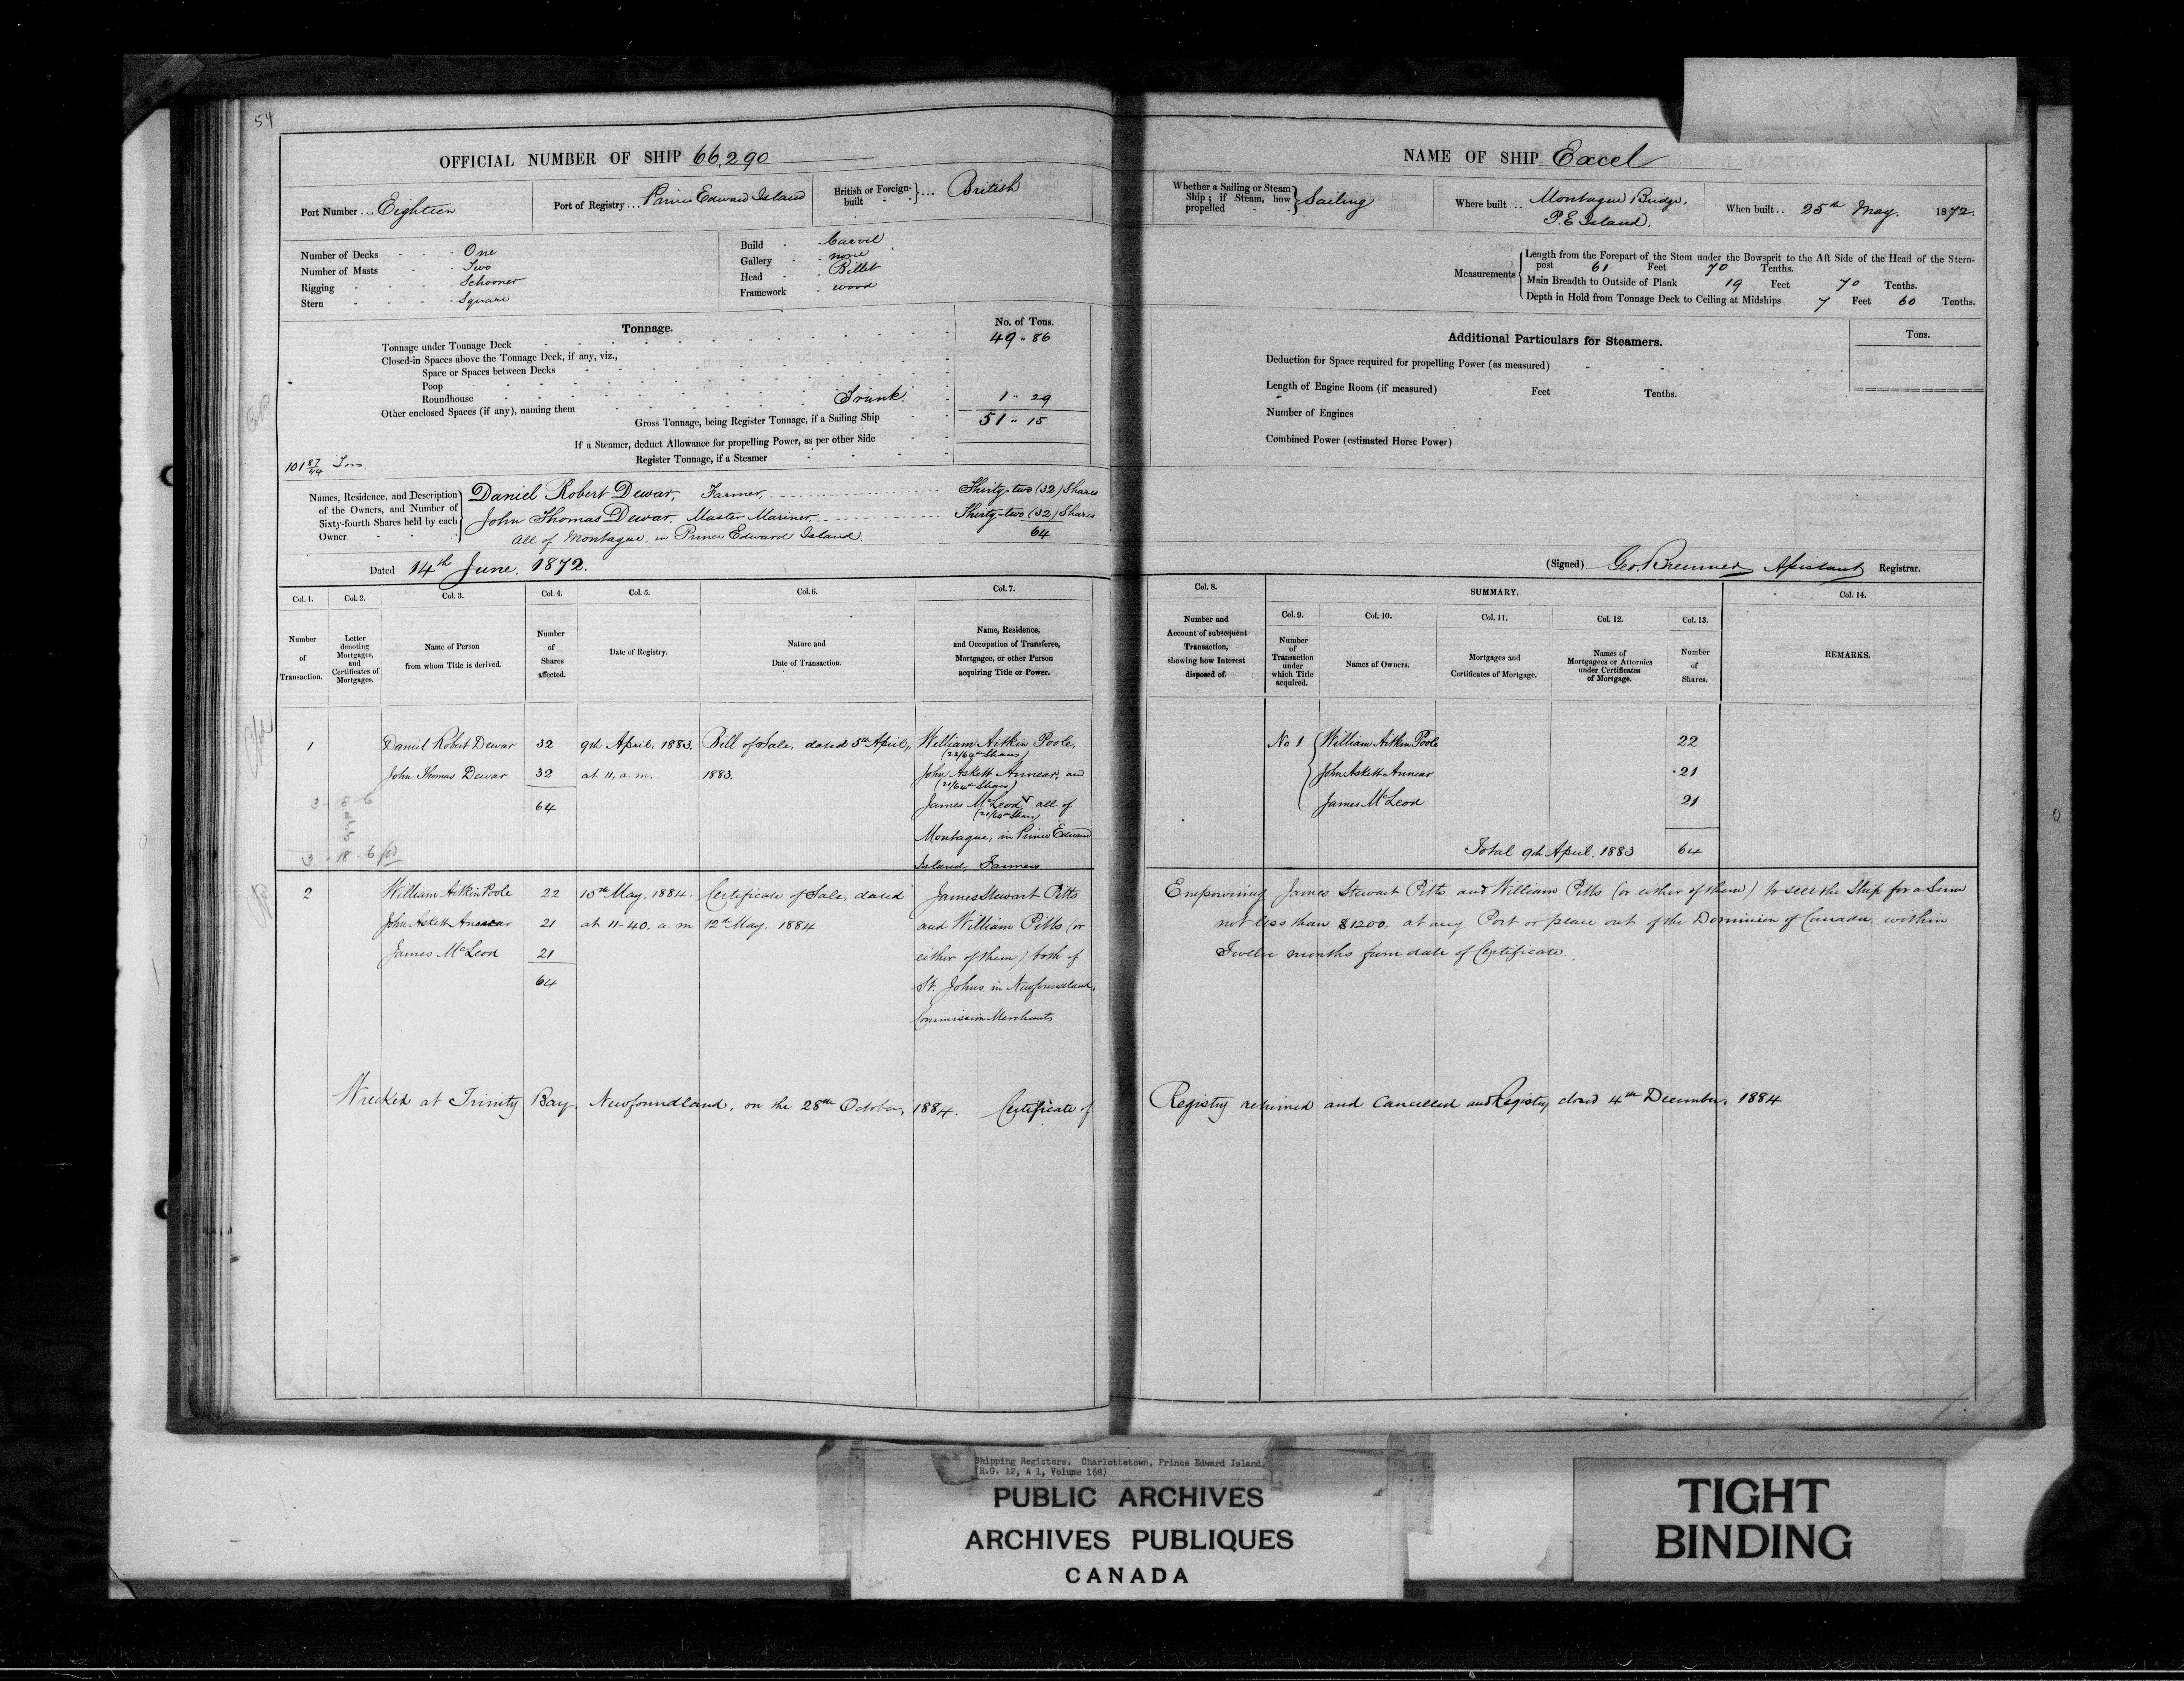 54
OFFICIAL NUMBER OF SHIP 66,290
Port Number ... Eighteen
Port of Registry ... Prince Edward Island
British or Foreign-built } ... British
Number of Decks - - - One
Number of Masts - - Two
Rigging - - - - Schooner
Stern - - - - Square
Build - - Carvel
Gallery - - none
Head - - Billet
Framework - wood
Tonnage.
No. of Tons.
Tonnage under Tonnage Deck 49 . 86
Closed-in Spaces above the Tonnage Deck, if any, viz.,
Space or Spaces between Decks
Poop
Roundhouse
Other enclosed Spaces (if any), naming them Trunk. 1 . 29
Gross Tonnage, being Register Tonnage, if a Sailing Ship 51 . 15
If a Steamer, deduct Allowance for propelling Power, as per other Side
Register Tonnage, if a Steamer
101 87/44 Tons.
Names, Residence, and Description of the Owners, and Number of Sixty-fourth Shares held by each Owner
Daniel Robert Dewar, Farmer, Thirty-two (32) Shares
John Thomas Dewar, Master Mariner, Thirty-two (32) Shares
All of Montague, in Prince Edward Island. 64
Dated 14th June, 1872.
Col. 1. Col. 2. Col. 3. Col. 4. Col. 5. Col. 6. Col. 7.
Number of Transaction.
Letter denoting Mortgages, and Certificates of Mortgages.
Name of Person from whom Title is derived.
Number of Shares affected.
Date of Registry.
Nature and Date of Transaction.
Name, Residence, and Occupation of Transferee, Mortgagee, or other Person acquiring Title or Power.
1 Daniel Robert Dewar 32 9th April, 1883. Bill of Sale, dated 5th April, William Aitkin Poole,
(22/64th Shares)
John Thomas Dewar 32 at 11, a.m. 1883. John Askett Annear, and
(21/64th Shares)
64 James McLeod all of
(21/64th Shares)
Montague, in Prince Edward
Island, Farmers
3 - 8 - 6
3 - 18 - 6
2 William Aitkin Poole 22 15th May, 1884. Certificate of Sale, dated James Stewart Pitts
John Askett Annear 21 at 11-40. a.m 12th May, 1884 and William Pitts (or
James McLeod 21 either of them) both of
64 St. Johns, in Newfoundland,
Commission Merchants
Wrecked at Trinity Bay, Newfoundland, on the 28th October, 1884. Certificate of
NAME OF SHIP Excel
Whether a Sailing or Steam Ship; if Steam, how propelled } Sailing
Where built ... Montague Bridge, P.E. Island.
When built .. 25th May. 1872.
Measurements
Length from the Forepart of the Stem under the Bowsprit to the Aft Side of the Head of the Stern-post 61 Feet 70 Tenths.
Main Breadth to Outside of Plank 19 Feet 70 Tenths.
Depth in Hold from Tonnage Deck to Ceiling at Midships 7 Feet 60 Tenths.
Additional Particulars for Steamers.
Tons.
Deduction for Space required for propelling Power (as measured)
Length of Engine Room (if measured) Feet Tenths.
Number of Engines
Combined Power (estimated Horse Power)
(Signed) Geo. Bremner Assistant Registrar.
Col. 8. SUMMARY. Col. 14.
Col. 9. Col. 10. Col. 11. Col. 12. Col. 13.
Number and Account of subsequent Transaction, showing how Interest disposed of.
Number of Transaction under which Title acquired.
Names of Owners.
Mortgages and Certificates of Mortgage.
Names of Mortgagees or Attornies under Certificates of Mortgage.
Number of Shares.
REMARKS.
No 1 William Aitkin Poole 22
John Askett Annear 21
James McLeod 21
Total 9th April, 1883 64
Empowering James Stewart Pitts and William Pitts (or either of them) to sell the Ship for a Sum
not less than $1200, at any Port or place out of the Dominion of Canada, within
Twelve months from date of Certificate.
Registry returned and Cancelled and Registry closed 4th December, 1884
Shipping Registers. Charlottetown, Prince Edward Island.
(R.G. 12, A 1, Volume 168)
PUBLIC ARCHIVES
ARCHIVES PUBLIQUES
CANADA
TIGHT
BINDING